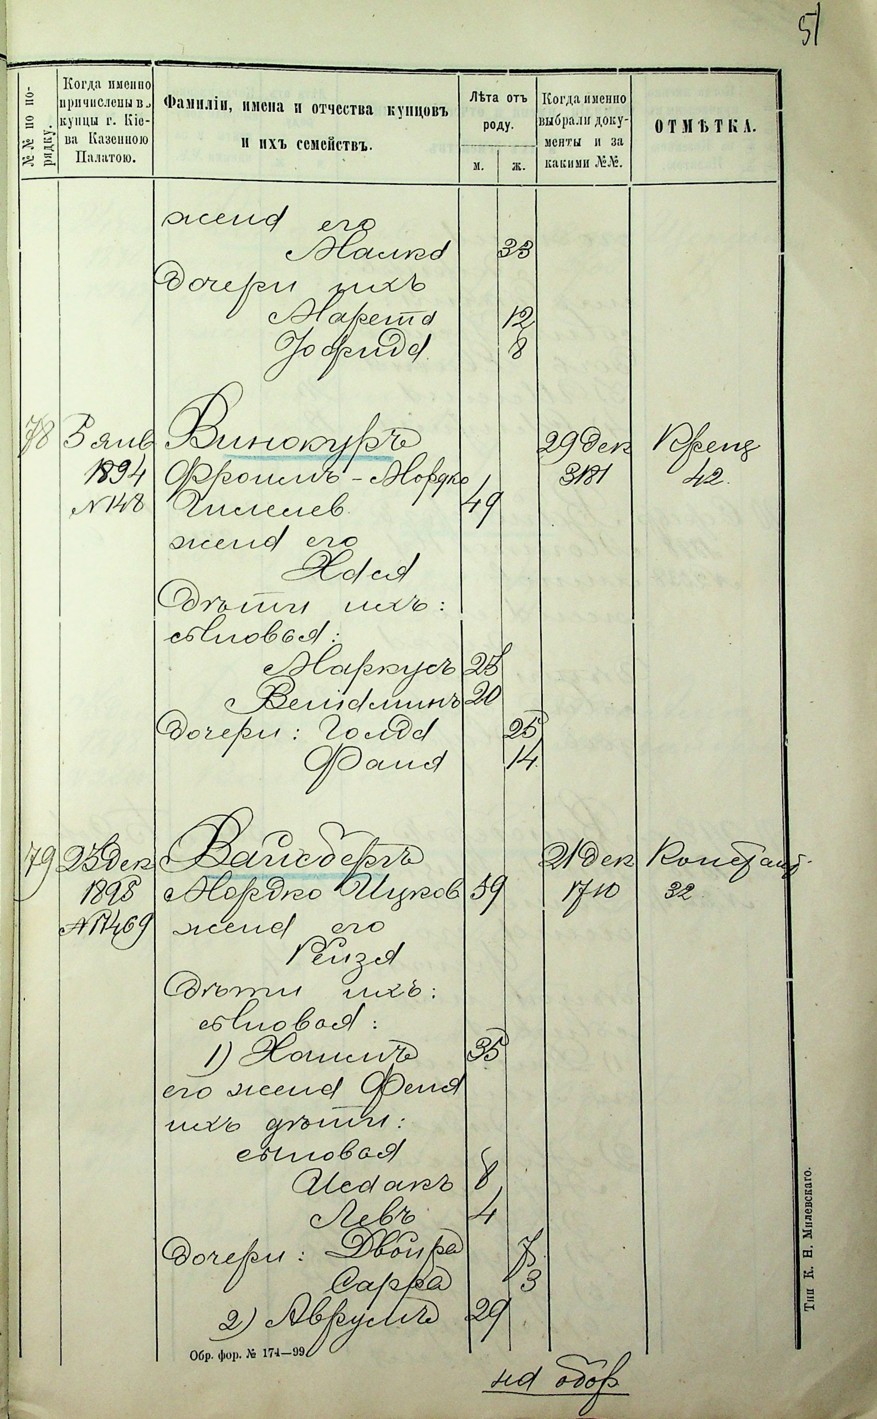 51
№№ по порядку.
Когда именно причислены въ купцы г. Кіева Казенною Палатою.
Фамиліи, имена и отчества купцовъ и ихъ семействъ.
Лѣта отъ роду.
м. ж.
Когда именно выбрали документы и за какими №№.
ОТМѢТКА.
жена его
Малка 33
дочери ихъ
Марета 12
Зофрида 8
78 5 янв Винокуръ 29 дек Крещ
1894 Фроимъ-Мордко 3181 42.
№ 148 Гилелев 49
жена его
Хася
дѣти ихъ:
сыновья:
Маркусъ 23
Веніаминъ 20
дочери: Голда 25
Фаня 14
79 23 дек Вайсбергъ 21 дек Констант.
1895 Мордко Ицков 59 1710 32
№ 11469 жена его
Рейзя
дѣти ихъ:
сыновья:
1) Хаимъ 35
его жена Феня
ихъ дѣти:
сыновья
Исаакъ 8
Левъ 4
дочери: Двойра 7
Сарра 3
2) Аврумъ 29
Обр. фор. № 174—99
на обор
Тип К. Н. Милевскаго.